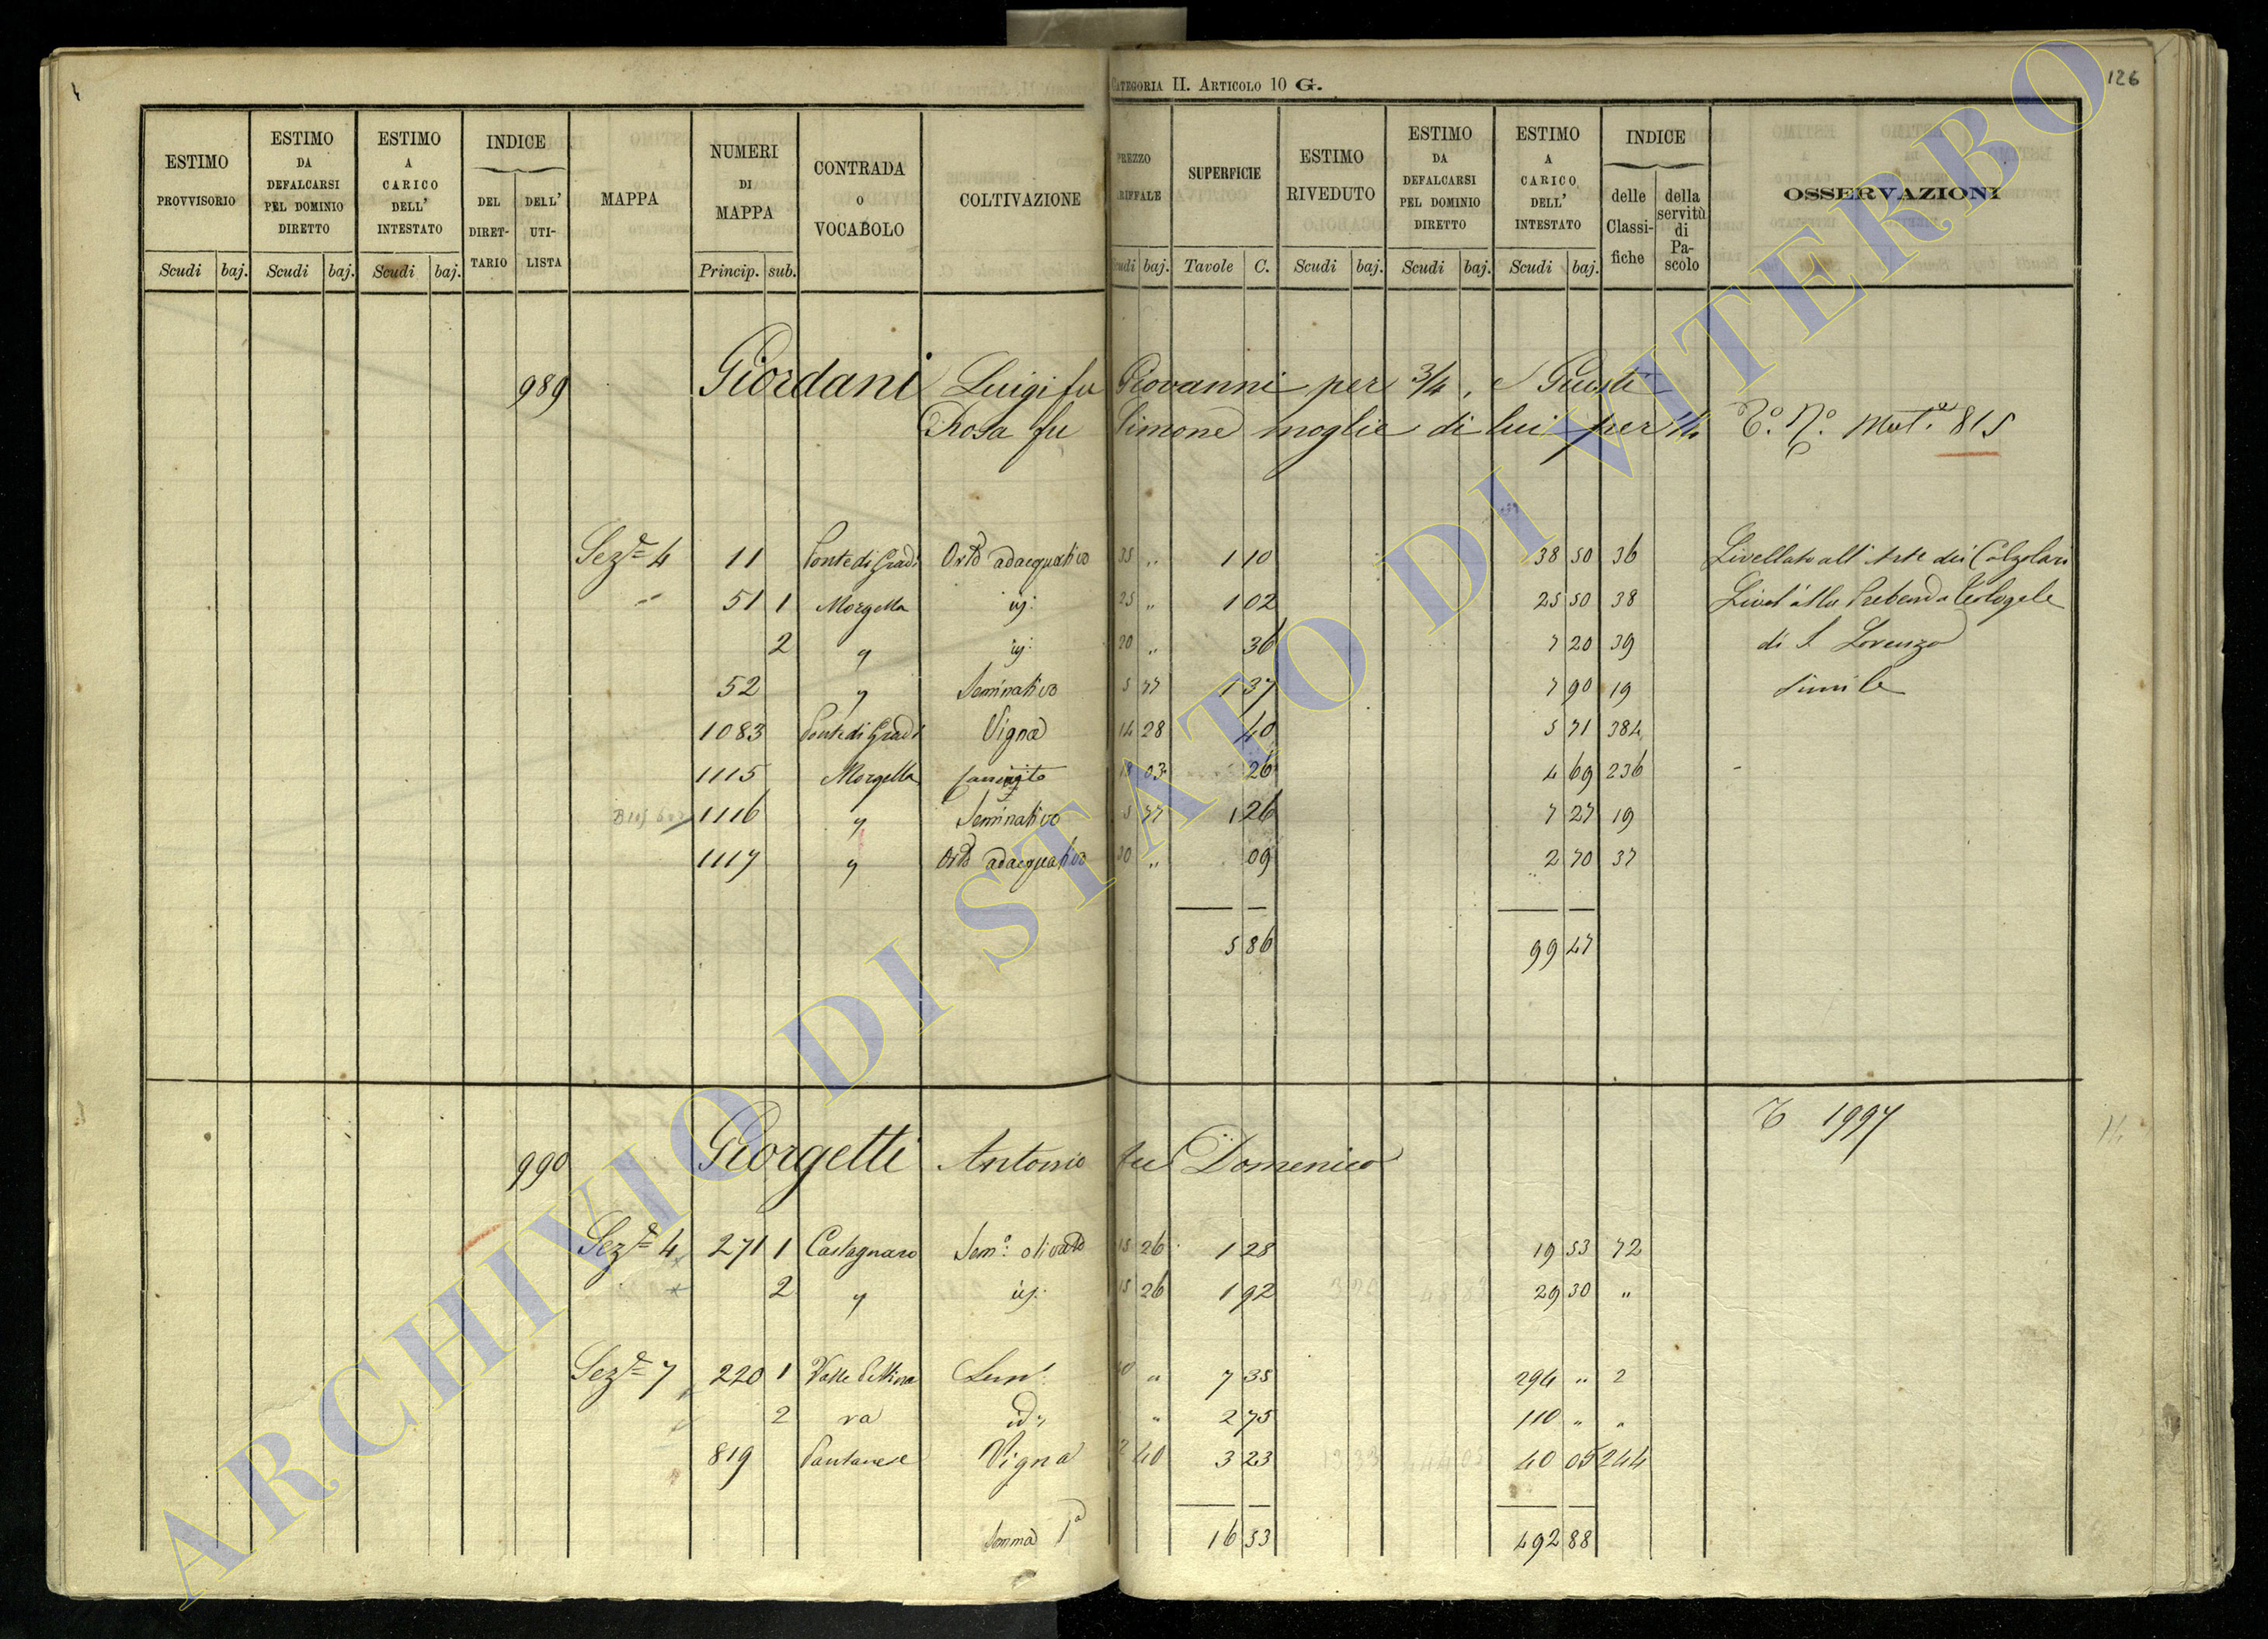 CATEGORIA II. ARTICOLO 10 G.
126
ESTIMO PROVVISORIO
ESTIMO DA DEFALCARSI PEL DOMINIO DIRETTO
ESTIMO A CARICO DELL' INTESTATO
INDICE
DEL DIRET-TARIO
DELL' UTI-LISTA
MAPPA
NUMERI DI MAPPA
CONTRADA O VOCABOLO
COLTIVAZIONE
PREZZO RIFFALE
SUPERFICIE
ESTIMO RIVEDUTO
ESTIMO DA DEFALCARSI PEL DOMINIO DIRETTO
ESTIMO A CARICO DELL' INTESTATO
INDICE
delle Classi-fiche
della servitù di Pa-scolo
OSSERVAZIONI
Scudi baj. Scudi baj. Scudi baj. Princip. sub. Scudi baj. Tavole C. Scudi baj. Scudi baj. Scudi baj.
989 Giordani Luigi fu Giovanni per 3/4, e Giusti
Rosa fu Simone moglie di lui per 1/4 T.° N.° Mut.e 815
Sez.e 4 11 Ponte di Gradi Orto adacquativo 35 „ 1 10 38 50 36 Livellato all'Arte dei Calzolari
51 1 Morgella id: 25 „ 1 02 25 50 38 Livel° alla Prebenda Teologale
2 " id: 20 „ 36 7 20 39 di S. Lorenzo
52 " Seminativo 5 77 1 37 7 90 19 simile
1083 Ponte di Gradi Vigna 14 28 40 5 71 384
1115 Morgella Canneto 18 03 26 4 69 236
1116 " Seminativo 5 77 1 26 7 27 19
1117 " Orto adacquativo 30 „ 09 2 70 37
5 86 99 47
T 1997
990 Giorgetti Antonio fu Domenico
Sez.e 4 271 1 Castagnaro Sem.° olivato 15 26 1 28 19 53 72
2 " id: 15 26 1 92 29 30 „
Sez.e 7 220 1 Valle Pettina Sem.° 40 „ 7 35 294 „ 2
2 ra id: „ 2 75 110 „ „
819 Pantanese Vigna 12 40 3 23 40 05 244
Somma 1a 16 53 492 88
ARCHIVIO DI STATO DI VITERBO